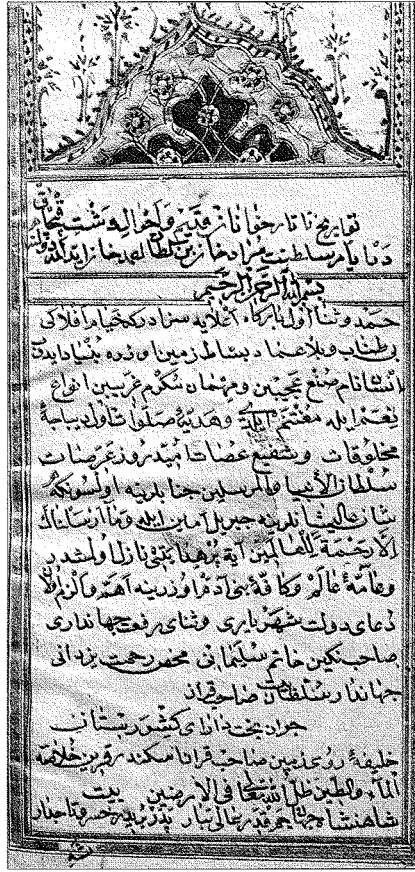 تواريخ تاتار خانان قديم و احوال دشت قبچاق
بسم الله الرحمن الرحيم
حمد و ثنا اول بارگاه اعلايه سزادركه خيام افلاكى
بى طناب و بلا عماد بساط زمين اوزره بنياد ايدوب
انسان نام صنع عجيبين و مهمان مكرم غريبين انواع
نعم ايله مغتنم ايلدى و هديۀ صلوات اول ديباجۀ
مخلوقات و شفيع عصات اميد روز عرصات
سلطان الانبيا و المرسلين جنابلرينه اولسونكه
شان اليشانلرينه جبريل امين ايله وما ارسلناك
الا رحمة للعالمين آية برهدايتى نازل اولمشدر
و عامۀ عالم و كافۀ بنى آدم اوزرينه اهم و الزم اولان
دعاى دولت شهريارى و ثناى رفعت جهاندارى
صاحب نكين خاتم سليمانى محض رحمت يزدانى
جهاندار و سلطان صاحبقران
جوان بخت داراى كشورستان
خليفۀ روى زمين صاحبقران اسكندر قرين خلاصة
الماء والطين ظل الله تعالى فى الارضين بيت
شاهنشاه جم قدر عالى تبار پدر بر پدر خسرو تاجدار